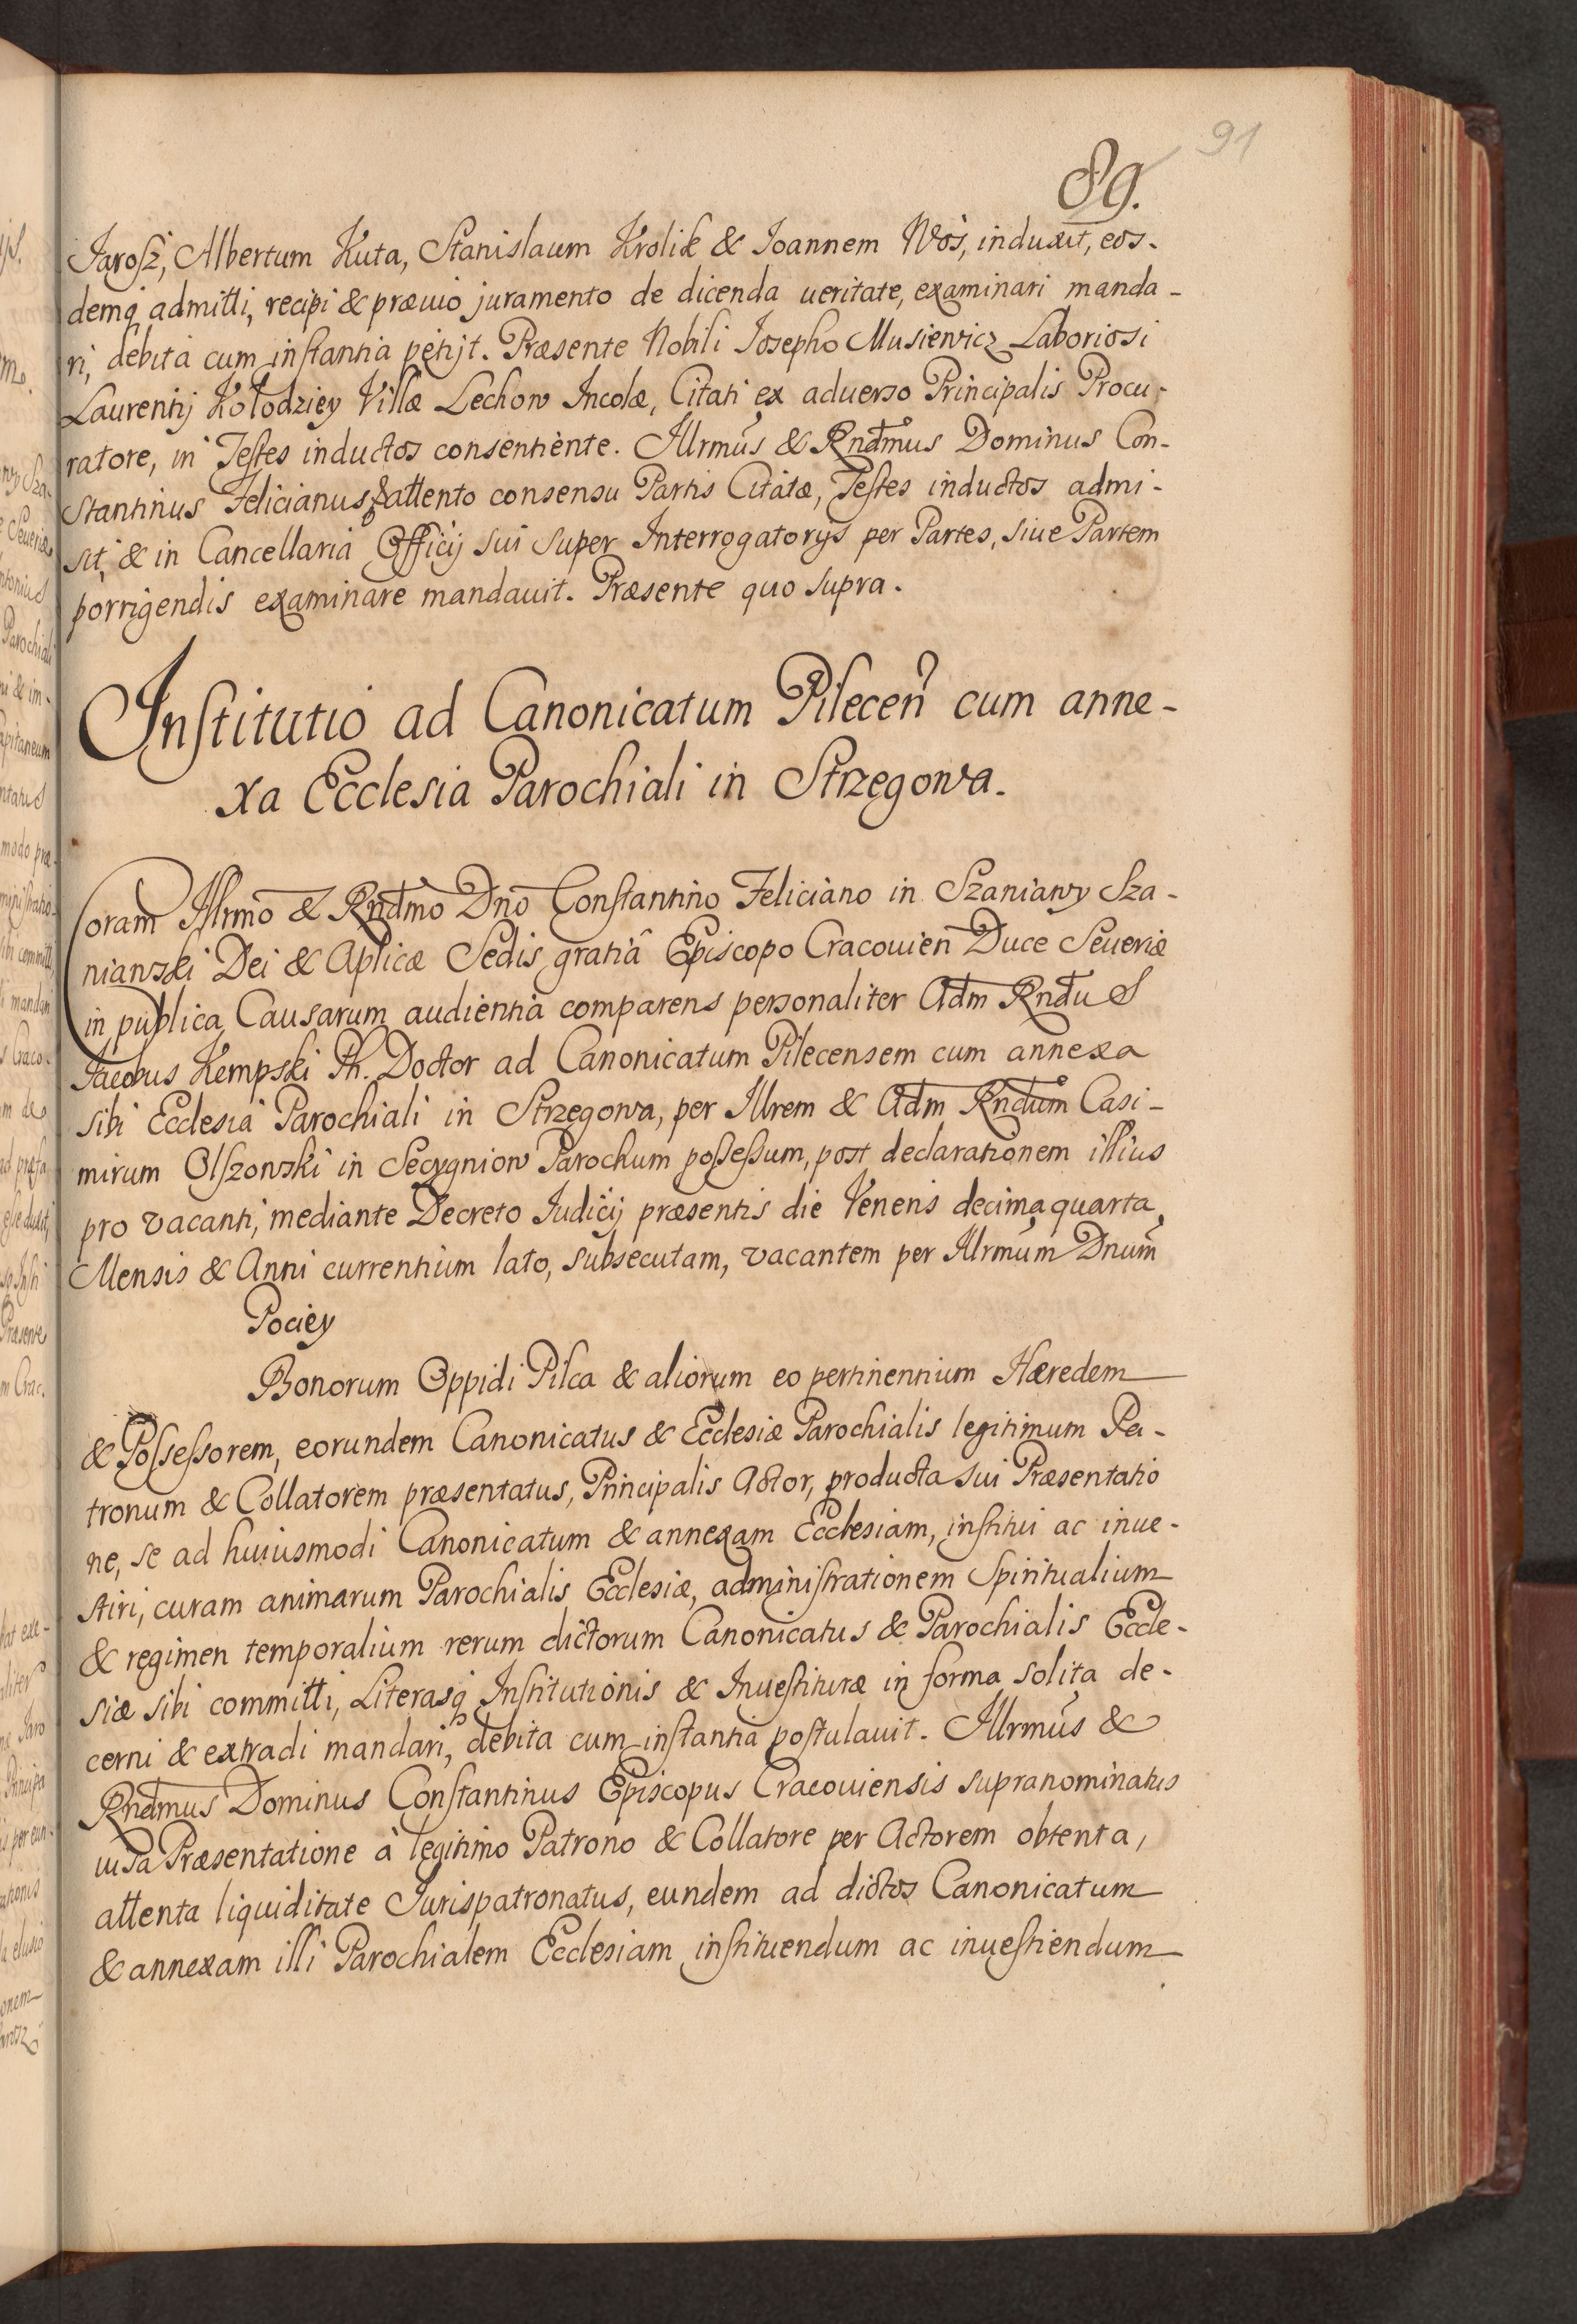 91
89.
Jarosz, Albertum Kuta, Stanislaum Krolik & Joannem Wos, induxit, eos-
demq admitti, recipi & præuio juramento de dicenda ueritate, examinari manda-
ri, debita cum instantia petijt. Præsente Nobili Josepho Musiewicz Laboriosi
Laurentij Kołodziey Villæ Lechow Incolæ, Citati ex aduerso Principalis Procu-
ratore, in Testes inductos consentiente. Illrmus & Rndmus Dominus Con-
stantinus Felicianus attento consensu Partis Citatæ, Testes inductos admi-
sit, & in Cancellaria Officij sui super Interrogatorys per Partes, siue Partem
porrigendis examinare mandauit. Præsente quo supra.
Institutio ad Canonicatum Pilecen̄ cum anne-
xa Ecclesia Parochiali in Strzegowa.
Coram Illrmo & Rndmo Dno Constantino Feliciano in Szaniawy Sza-
niawski Dei & Aplicæ Sedis gratiâ Episcopo Cracouien Duce Seueriæ
in publica Causarum audientia comparens personaliter Adm Rndus
Jacobus Kempski Ph. Doctor ad Canonicatum Pilecensem cum annexa
sibi Ecclesia Parochiali in Strzegowa, per Illrem & Adm Rndum Casi-
mirum Olszowski in Secygniow Parochum possessum, post declarationem illius
pro vacanti, mediante Decreto Judicij præsentis die Veneris decima quarta
Mensis & Anni currentium lato, subsecutam, vacantem per Illrmum Dnum
Pociey
Bonorum Oppidi Pilca & aliorum eo pertinentium Hæredem
& Possessorem, eorundem Canonicatus & Ecclesiæ Parochialis legitimum Pa-
tronum & Collatorem præsentatus, Principalis Actor, producta sui Præsentatio
ne, se ad huiusmodi Canonicatum & annexam Ecclesiam, institui ac inue-
stiri, curam animarum Parochialis Ecclesiæ, administrationem Spiritualium
& regimen temporalium rerum dictorum Canonicatus & Parochialis Eccle-
siæ sibi committi, Literasq Institutionis & Inuestituræ in forma solita de-
cerni & extradi mandari, debita cum instantia postulauit. Illrmus &
Rndmus Dominus Constantinus Episcopus Cracouiensis supranominatus
uisa Præsentatione à legitimo Patrono & Collatore per Actorem obtenta,
attenta liquiditate Jurispatronatus, eundem ad dictos Canonicatum
& annexam illi Parochialem Ecclesiam instituendum ac inuestiendum